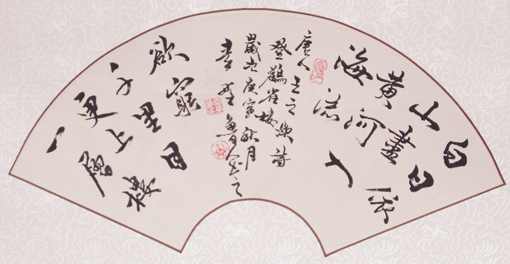 白日依
山盡
黄河入
海流
唐人王之渙詩
登鸛雀樓
歲在庚寅秋月
欲窮
千里目
更上
一層樓